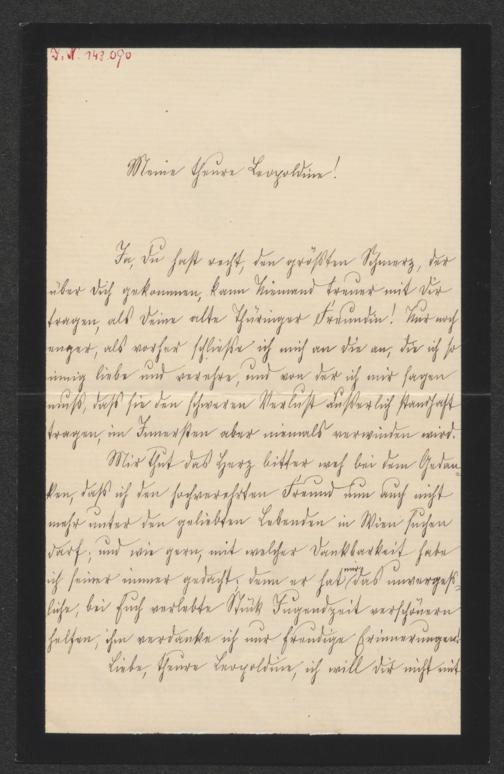 I. N. 143.090
Meine theure Leopoldine!
Ja, Du hast recht, den größten Schmerz, der
über Dich gekommen, kann Niemand treuer mit Dir
tragen, als Deine alte Thüringer Freundin! Nur noch
enger, als vorher schließe ich mich an die an, die ich so
innig liebe und verehre, und von der ich mir sagen
muß, daß sie den schweren Verlust äußerlich standhaft
tragen, im Innersten aber niemals verwinden wird.
Mir thut das Herz bitter weh bei dem Gedan-
ken, daß ich den hochverehrten Freund nun auch nicht
mehr unter den geliebten Lebenden in Wien suchen
darf; und wie gern, mit welcher Dankbarkeit habe
ich seiner immer gedacht, denn er hat mir das unvergeß-
liche, bei Euch verlebte Stück Jugendzeit verschönern
helfen, ihm verdanke ich nur freudige Erinnerungen.
Liebe, theure Leopoldine, ich will Dir nicht mit